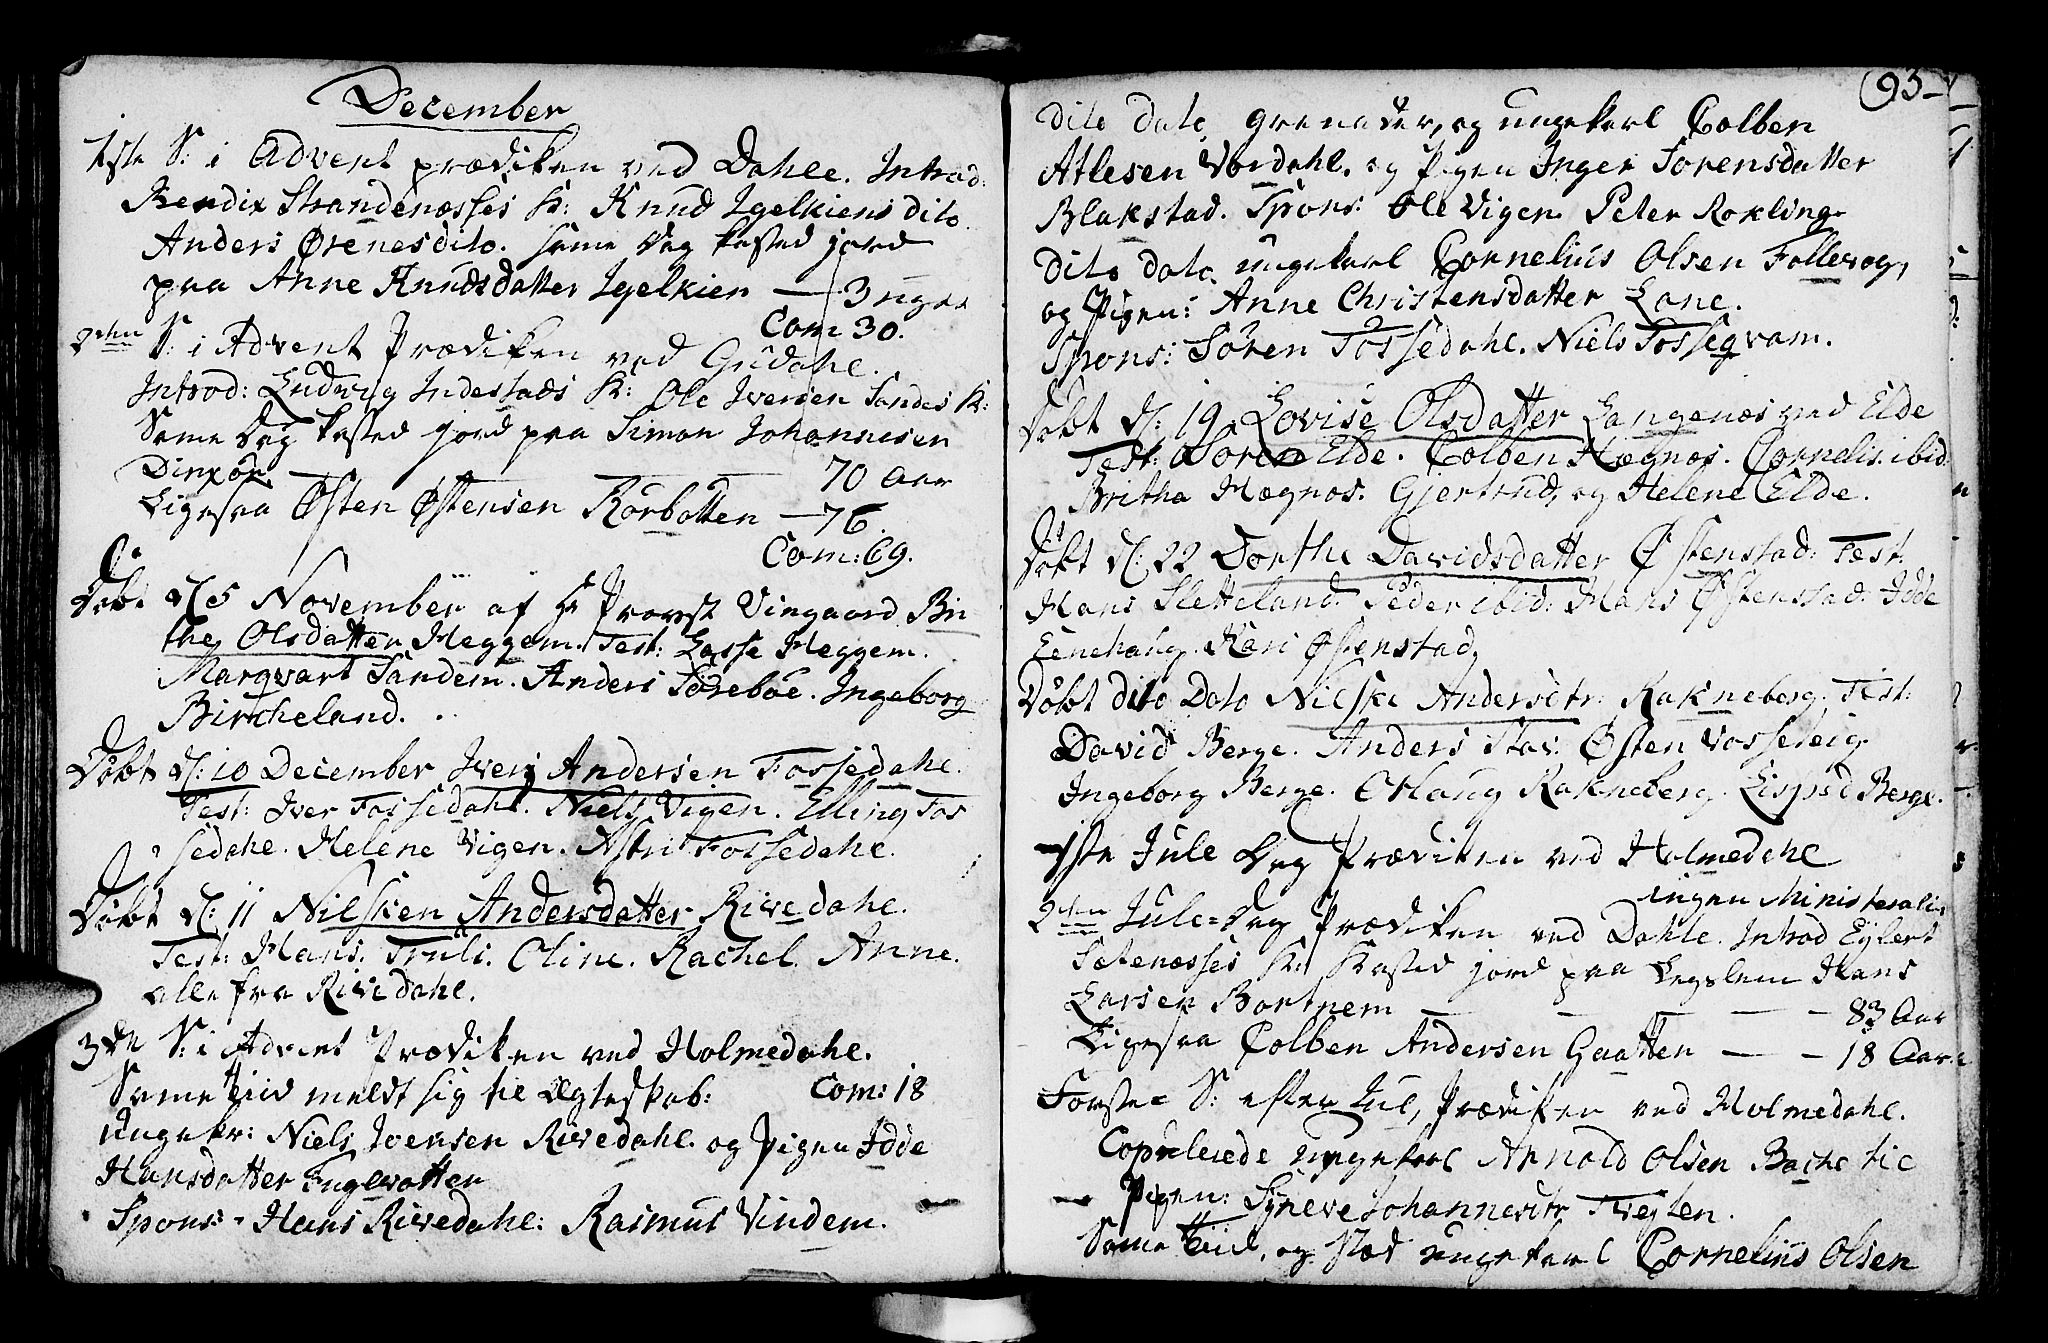 December
1ste S: i Advent prædiken ved Dahle. Introd:
Bendix Strandenæsses K: Knud Igelkiens dito
Anders Ørenes dito. Same Dag kasted jord
paa Anne Knudsdatter Igelkien — 3 uger
Com 30.
2den S: i Advent Prædiken ved Gudahl.
Introd: Ludvig Indestads K: Ole Iversen Sandes K:
Same Dag kasted jord paa Simon Johannesen
Dinxør — 70 Aar
Ligesaa Østen Østensen Rørbotten — 76.
Com: 69.
Døbt d: 5 November af Hr Provst Vingaard Bri
the Olsdatter Heggem. Test: Lasse Heggem.
Marqvart Sandem. Anders Sørebøe. Ingeborg
Bircheland.
Døbt d: 10 December Iver Andersen Fossedahl.
Test: Iver Fossedahl. Niels Vigen. Elling Fos
sedahl. Helene Vigen. Astri Fossedahl.
Døbt d: 11 Nilsken Andersdatter Rivedahl.
Test: Hans. Truls. Oline. Rachel. Anne.
alle fra Rivedahl.
3de S: i Advent Prædiken ved Holmedahl.
Same Tiid meldt sig til Ægteskab: Com: 18
Ungekr: Niels Iversen Rivedahl. og Pigen Idde
Hansdatter Fuglevatten
Spons: Hans Rivedahl: Rasmus Vindem.
93
dito dato grenader, og ungekarl Colben
Atlesen Vardahl. og Pigen Inger Sørensdatter
Blakstad. Spons: Ole Vigen Peter Rokling.
dito dato ungekarl Cornelius Olsen Follevog,
og Pigen: Anne Christensdatter Lone.
Spons: Søren Fossedahl. Niels Fosseqvam.
Døbt d: 19 Lovise Olsdatter Langenæs ved Elde
Test: Søren Elde. Colben Hægnæs. Cornelis ibid:
Britha Hægnæs. Gjertrud, og Helene Elde.
Døbt d: 22 Dorthe Davidsdatter Østenstad: Test:
Hans Sletteland. Peder ibid: Hans Østenstad: Idde
Eenehaug. Kari Østenstad,
Døbt dito Dato Nilske Andersdtr: Rakneberg. Test:
David Berge. Anders Stav. Østen Vasseleig.
Ingeborg Berge. Olaug Rakneberg. Lisped Berge.
1ste Jule Dag Prædiken ved Holmedahl
ingen Ministerialia
2den Jule=Dag Prædiken ved Dahle. Introd Eylert
Setenæsses K: Kasted jord paa Legslem Hans
Larsen Bortnem — 83 Aar
Ligesaa Colben Andersen Gaatten — 18 Aar.
Første S: efter Jul, Prædiken ved Holmedahl.
Copulerede ungekarl Arnold Olsen Bache til
Pigen: Syneve Johannesdtr Tveyten.
Same Tiid, og Stæd ungekarl Cornelius Olsen